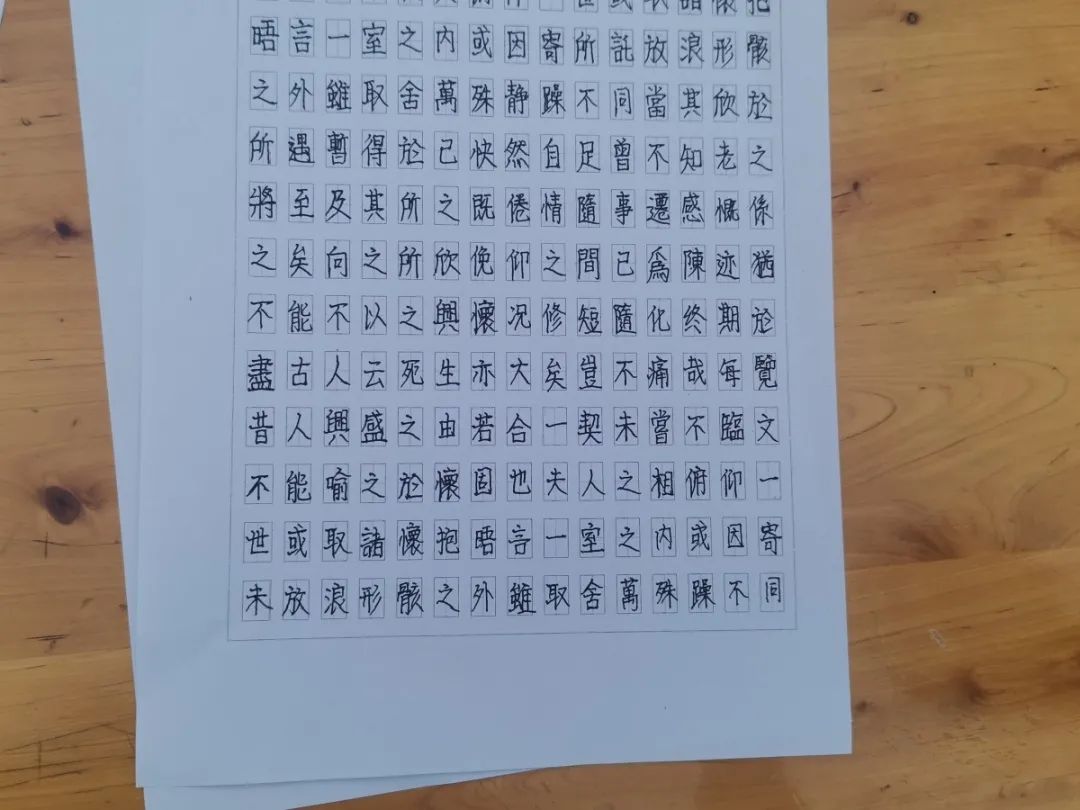 世或取諸懷抱
晤言一室之內或因寄所託放浪形骸
之外雖取舍萬殊静躁不同當其欣於
所遇暫得於己快然自足曾不知老之
將至及其所之既倦情隨事遷感慨係
之矣向之所欣俛仰之間已爲陳迹猶
不能不以之興懷况修短隨化终期於
盡古人云死生亦大矣豈不痛哉每覽
昔人興盛之由若合一契未嘗不臨文
不能喻之於懷固也夫人之相俯仰一
世或取諸懷抱晤言一室之内或因寄
未放浪形骸之外雖取舍萬殊躁不同